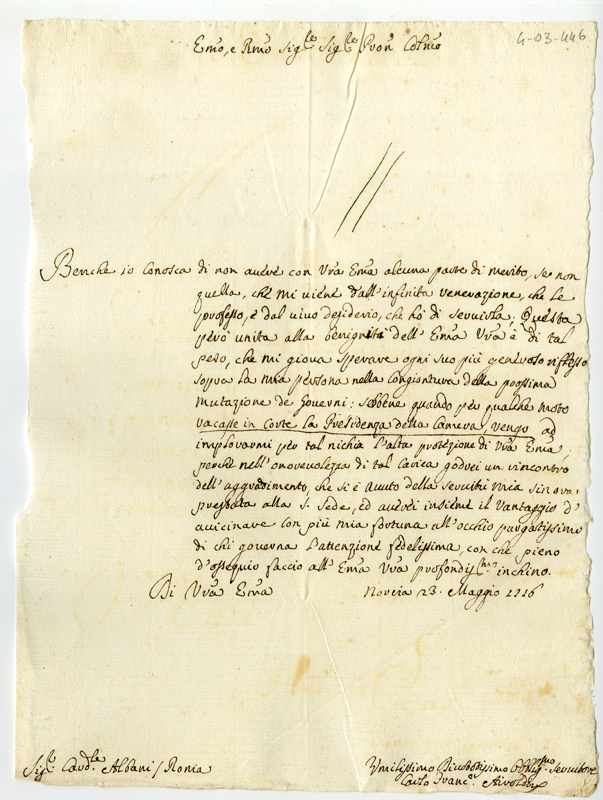 4-03-446
Emo, e Rmo Sigre Sigre Pron Colmo
Benche io conosca di non avere con Vra Ema alcuna parte di merito, se non
quella, che mi viene dall'infinita venerazione, che le
professo, e dal vivo desiderio, che hò di servirla: Questa
però unita alla benignità dell'Ema Vra è di tal
peso, che mi giova sperare ogni suo più generoso riflesso
sopra la mia persona nella congiontura della prossima
mutazione de Governi: sebbene quando per qualche moto
vacasse in Corte la Presidenza della Camera, vengo ad
implorarmi per tal nichia l'alta protezione di Vra Ema,
perche nell'onorevolezza di tal carica godrei un rincontro
dell'aggradimento, che si è avuto della servitù mia sinora
prestata alla S. Sede, ed averei insieme il vantaggio d'
avicinare con più mia fortuna all'occhio purgatissimo
di chi governa l'attenzione fedelissima, con che pieno
d'ossequio faccio all'Ema Vra profondismo inchino.
Di Vra Ema
Norcia 23. Maggio 1716
Sigre Cardle Albani / Roma
Umilissimo Divotissimo Obbligmo Servitore
Carlo Francо